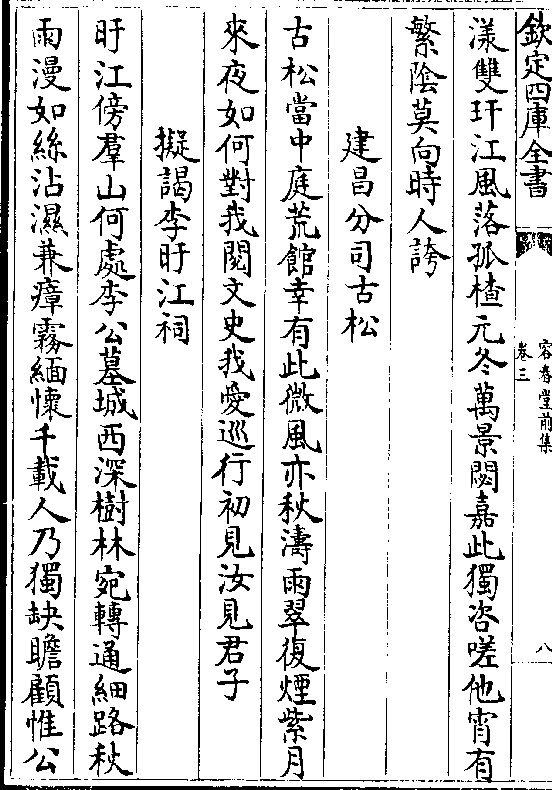 欽定四庫全書
容春堂前集
卷三
八
漾雙玕江風落孤楂元冬萬景閟嘉此獨咨嗟他宵有
繁陰莫向時人誇
建昌分司古松
古松當中庭荒館幸有此微風亦秋濤雨翠復煙紫月
來夜如何對我閱文史我愛巡行初見汝見君子
擬謁李盱江祠
盱江傍羣山何處李公墓城西深樹林宛轉通細路秋
雨漫如絲沾濕兼瘴霧緬懷千載人乃獨缺瞻顧惟公